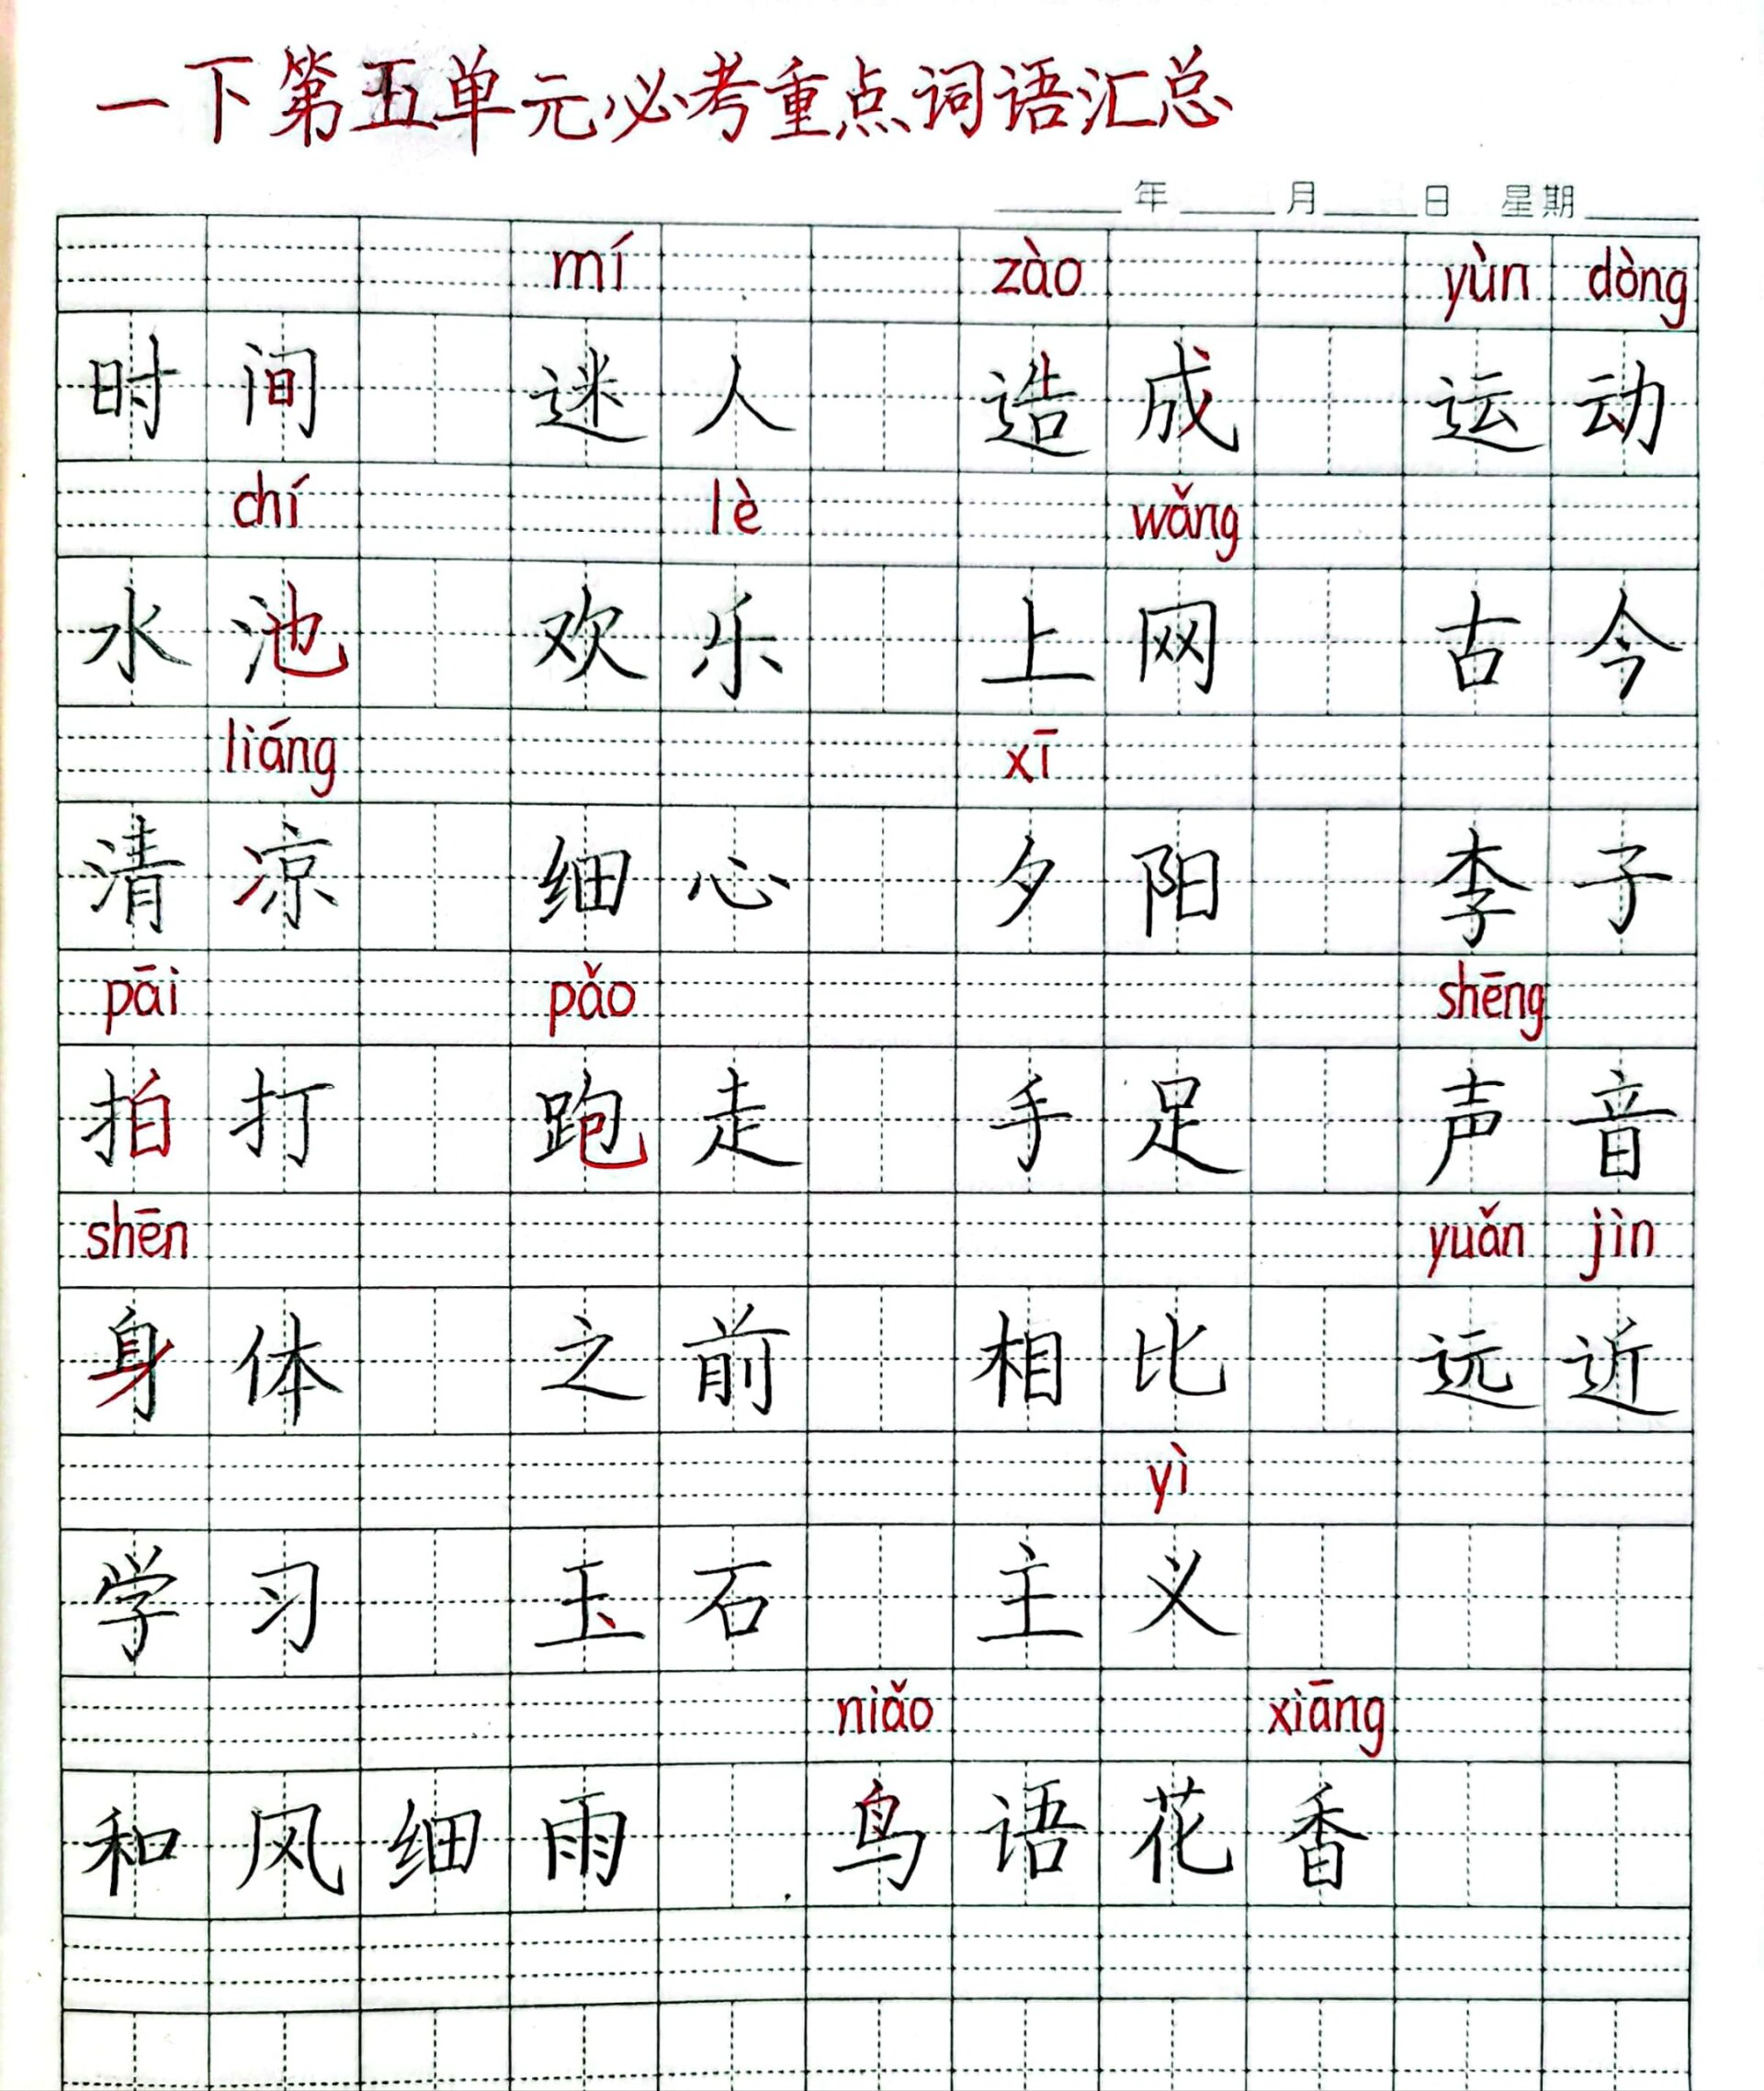 一下第五单元必考重点词语汇总
年 月 日 星期
mí zào yùn dòng
时间 迷人 造成 运动
chí lè wǎng
水池 欢乐 上网 古今
liáng xī
清凉 细心 夕阳 李子
pāi pǎo shēng
拍打 跑走 手足 声音
shēn yuǎn jìn
身体 之前 相比 远近
yì
学习 玉石 主义
niǎo xiāng
和风细雨 鸟语花香